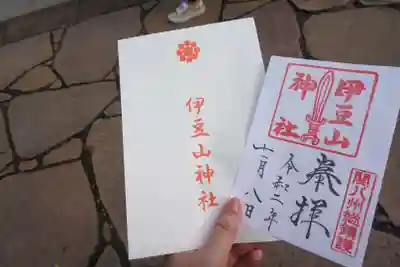 伊豆山神社
伊豆山
神社
奉拝
令和二年
十一月八日
關八州総鎮護